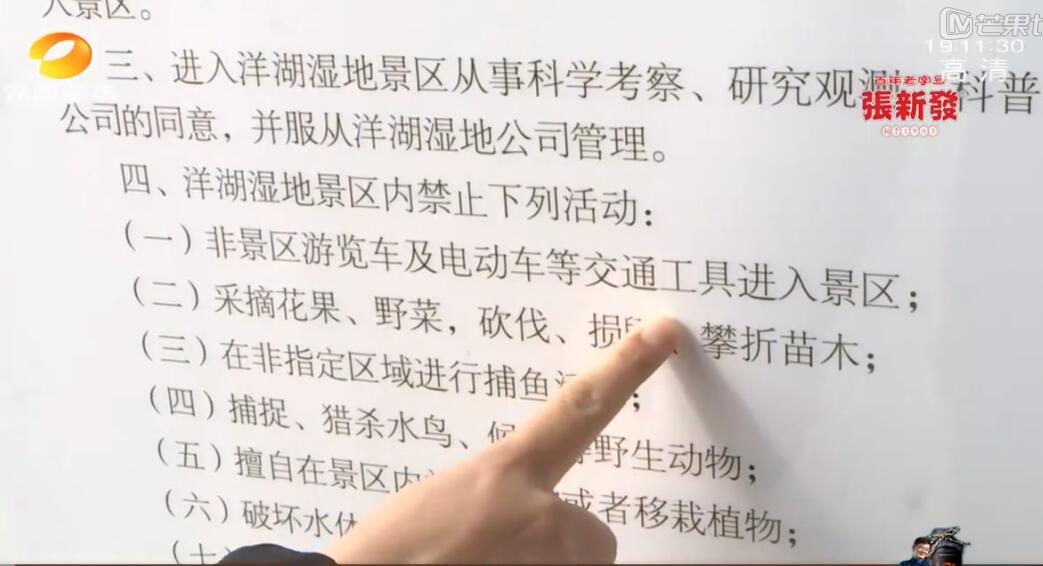 入景区。
三、进入洋湖湿地景区从事科学考察、研究观测 科普
公司的同意，并服从洋湖湿地公司管理。
四、洋湖湿地景区内禁止下列活动：
（一）非景区游览车及电动车等交通工具进入景区；
（二）采摘花果、野菜，砍伐、损 、攀折苗木；
（三）在非指定区域进行捕鱼 ；
（四）捕捉、猎杀水鸟、候 等野生动物；
（五）擅自在景区内 或者移栽植物；
（六）破坏水体
芒果
19:11:30
高清
百年老字号
張新發